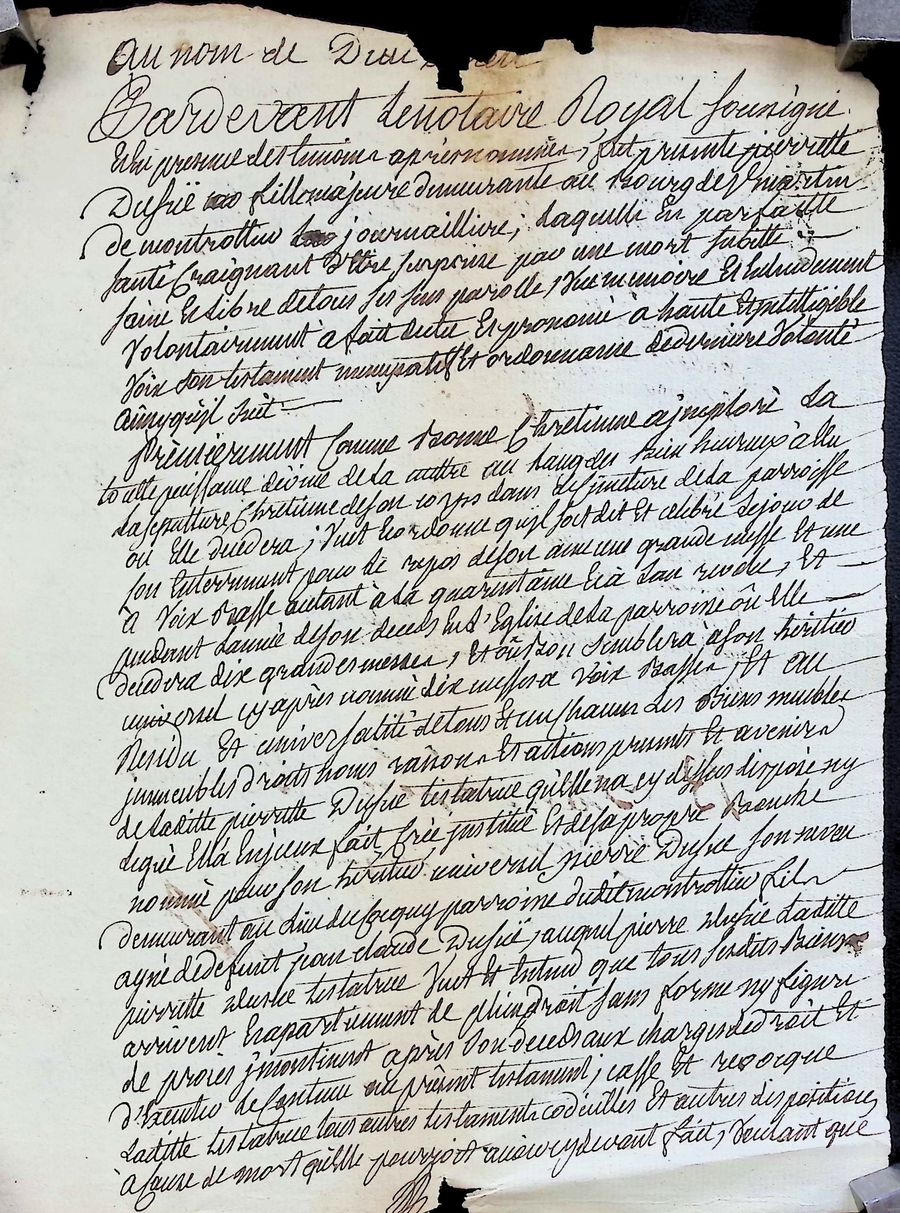 Au nom de Dieu
Pardevant Lenotaire Royal Sousigné
Et en presence des temoins apres nommés, fut presente pierrette
Dufué fille majeure demeurante au Bourg de St martin
de montrottier journailliere, laquelle En parfaitte
santé Craignant d'être surprise par une mort subitte
saine Et libre de tous ses sens parolle, Vue memoire Et Entendement
Volontairement a fait dicté Et prononcé à haute Et intelligible
Voix son testament nuncupatif Et ordonnance de derniere Volonté
ainsy qu'il suit
Prémiérement Comme Bonne Chrétienne a imploré La
toutte puissance divine de la mettre au rang des Bien heureux à Elu
La sepulture Chrétienne de son corps dans Le Cimetiere de la parroisse
ou Elle decedera ; Veut Et ordonne qu'il soit dit Et célébré Le jour de
son Enterrement pour Le repos de son ame une grande messe Et une
à Voix Basse autant à La quarantaine Et à L'an revolu, Et
pendant L'année de son deceds En L'Eglise de La parroisse où Elle
decedera dix grandes messes, Et où Bon semblera à son héritier
universel cy après nommé dix messes à Voix Basse, Et au
Residu Et universalité de tous Et un chacun Les Biens meubles
immeubles droits noms raisons Et actions presents Et avenirs
de Laditte pierrette Dufué testatrice qu'elle n'a cy dessus disposé ny
legué Ell'a Enjceux fait Créé jnstitué Et de sa propre Bouche
nommé pour son heritier universel pierre Dufué son neveu
demeurant au Lieu du parroisse dudit montrottier fils
ayné de defunt jean claude Dufué, auquel pierre Dufué Laditte
pierrette Dufué testatrice Veut Et Entend que tous sesdits Biens
arrivent Et apartiennent de plein droit sans forme ny figure
de procès jmontinent après son deceds aux charges de droit Et
d'Executer Le Contenu au présent testament ; casse Et revoque
Laditte testatrice tous autres testaments codicilles Et autres dispositions
à Cause de mort qu'elle pourroit avoir cydevant fait, Voulant que